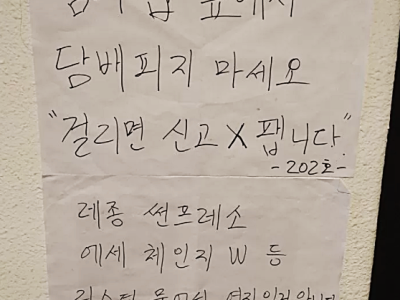 앞에서
담배피지 마세요
"걸리면 신고 X 팹니다."
-202호-
레종 썬프레소
에세 체인지 W 등